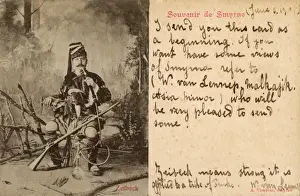 Souvenir de Smyrne
June 2.
I send you this card as
a beginning. If you
want have some views
of Smyrna refer to
(W. van Lennep, Malkajik,
Asia Minor) who will
be very pleased to send
some.
Zeibeck means strong it is
applied to a tribe of Turks.
W. van Lennep
Zeibeck